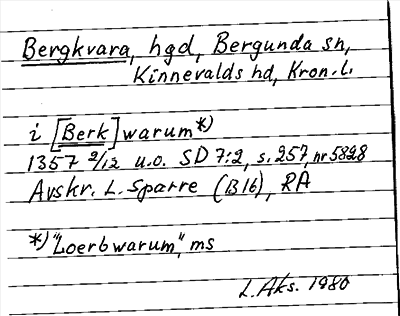 Bergkvara, hgd, Bergunda sn,
Kinnevalds hd, Kron. l.
i [Berk]warum*)
1357 2/12 u.o. SD 7:2, s. 257, nr 5828
Avskr. L. Sparre (B16), RA
*) "Loerbwarum", ms
L. Aks. 1980